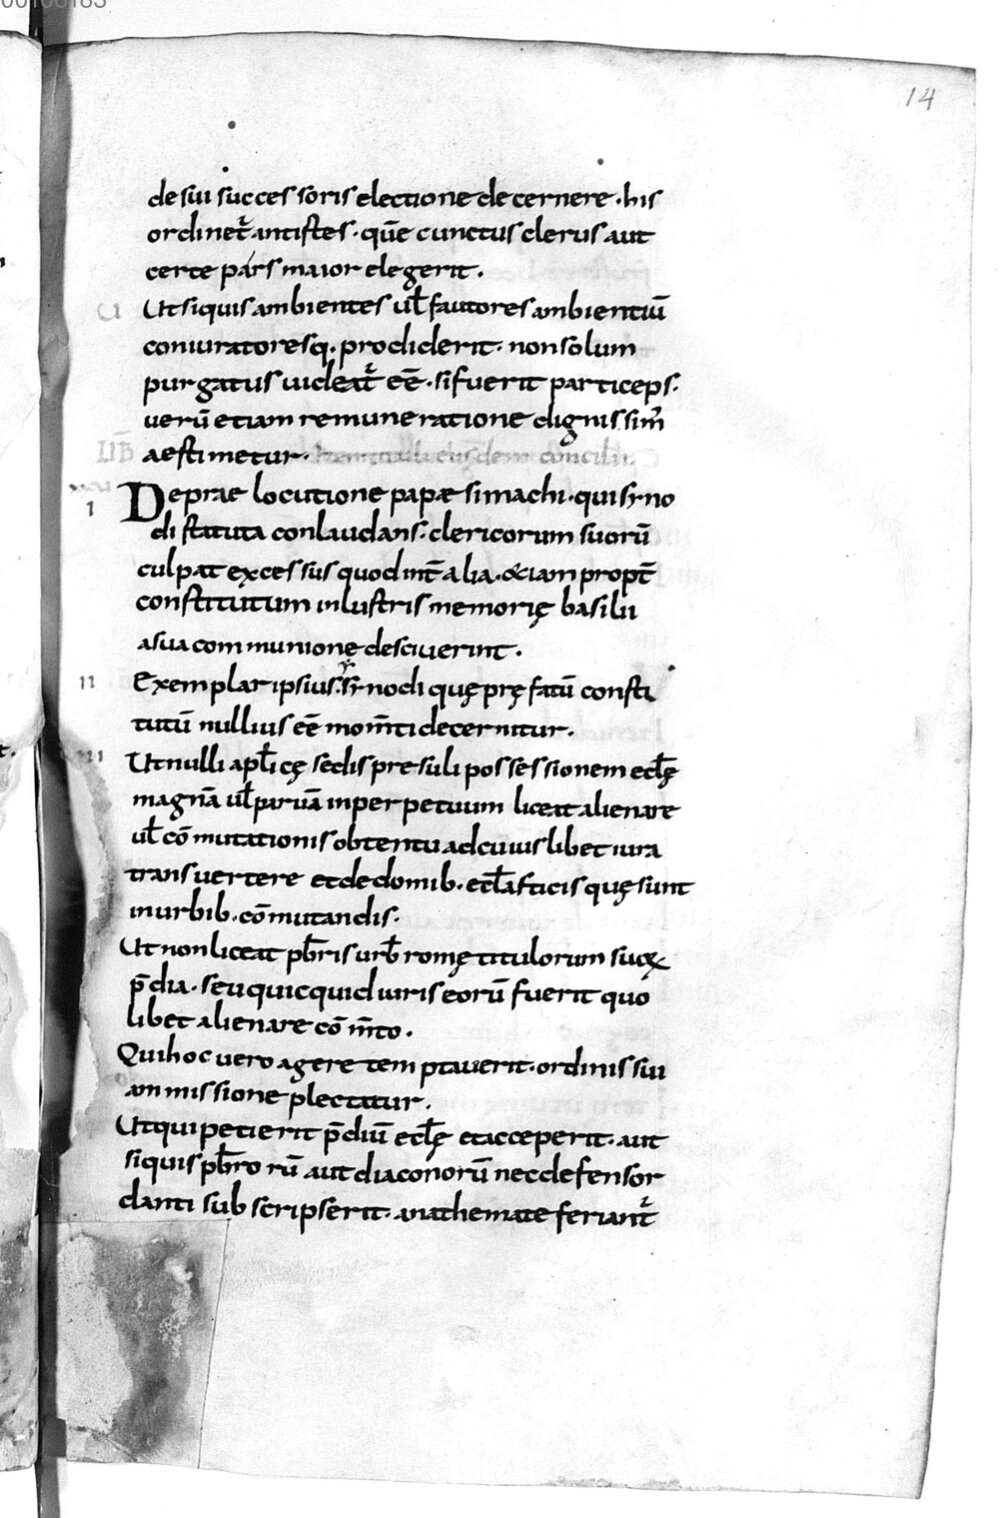 00100183
14
de sui successoris electione decernere · his
ordinet̃ antistes · quē cunctus clerus aut
certe pars maior elegerit .
U Ut siquis ambientes ul̃ fautores ambientiū
coniuratoresq· prodiderit · non solum
purgatus uideat̃ eē · si fuerit particeps ·
uerū etiam remuneratione dignissim̃
aestimetur · concilii .
I De praelocutione papae simachi · qui syno
di statuta conlaudans · clericorum suorū
culpat excessus quod int̃ alia · &iam propt̃
constitutum inlustris memorię basilii
a sua communione desciuerint .
II Exemplar ipsius synodi quę pręfatū consti
tutū nullius eē mom̃ti decernitur .
III Ut nulli apl̃icę sedis presuli possessionem eccl̃ę
magnā ul̃ paruā in perpetuum liceat alienare
ul̃ cōmutationis obtentu ad cuius libet iura
transuertere et de domib · eccl̃asticis quę sunt
in urbib · cōmutandis ·
Ut non liceat pb̃ris urb̃ romę titulorum suoꝝ
p̄dia · seu quicquid iuris eorū fuerit quo
libet alienare cōm̃to .
Qui hoc uero agere temptauerit · ordinis sui
ammissione plectatur .
Ut qui petierit p̄diū eccl̃ę et acceperit · aut
siquis pb̃rorū aut diaconorū nec defensor
danti subscripserit · anathemate feriant̃